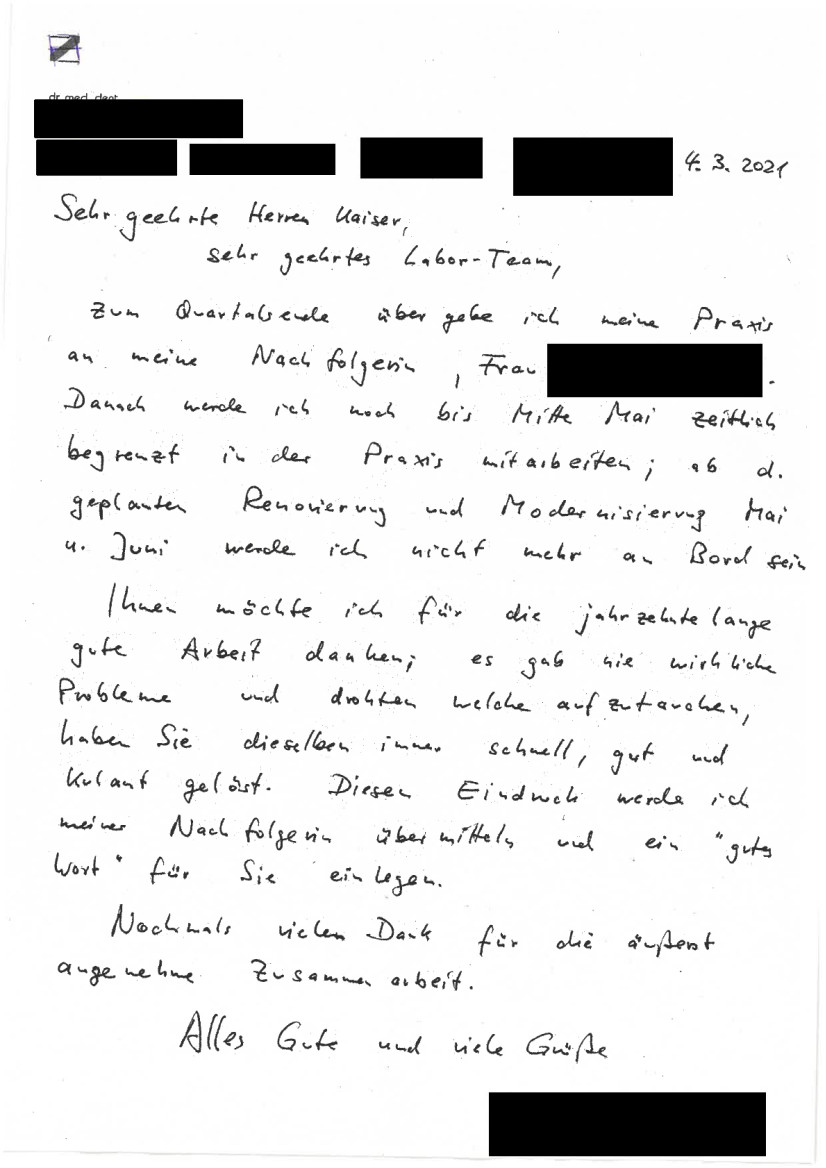 dr. med. dent.
4. 3. 2021
Sehr geehrte Herren Kaiser,
sehr geehrtes Labor-Team,
zum Quartalsende übergebe ich meine Praxis
an meine Nachfolgerin, Frau .
Danach werde ich noch bis Mitte Mai zeitlich
begrenzt in der Praxis mitarbeiten; ab d.
geplanten Renovierung und Modernisierung Mai
u. Juni werde ich nicht mehr an Bord sein
Ihnen möchte ich für die jahrzehntelange
gute Arbeit danken; es gab nie wirkliche
Probleme und drohten welche aufzutauchen,
haben Sie dieselben immer schnell, gut und
kulant gelöst. Diesen Eindruck werde ich
meiner Nachfolgerin übermitteln und ein "gutes
Wort" für Sie einlegen.
Nochmals vielen Dank für die äußerst
angenehme Zusammenarbeit.
Alles Gute und viele Grüße